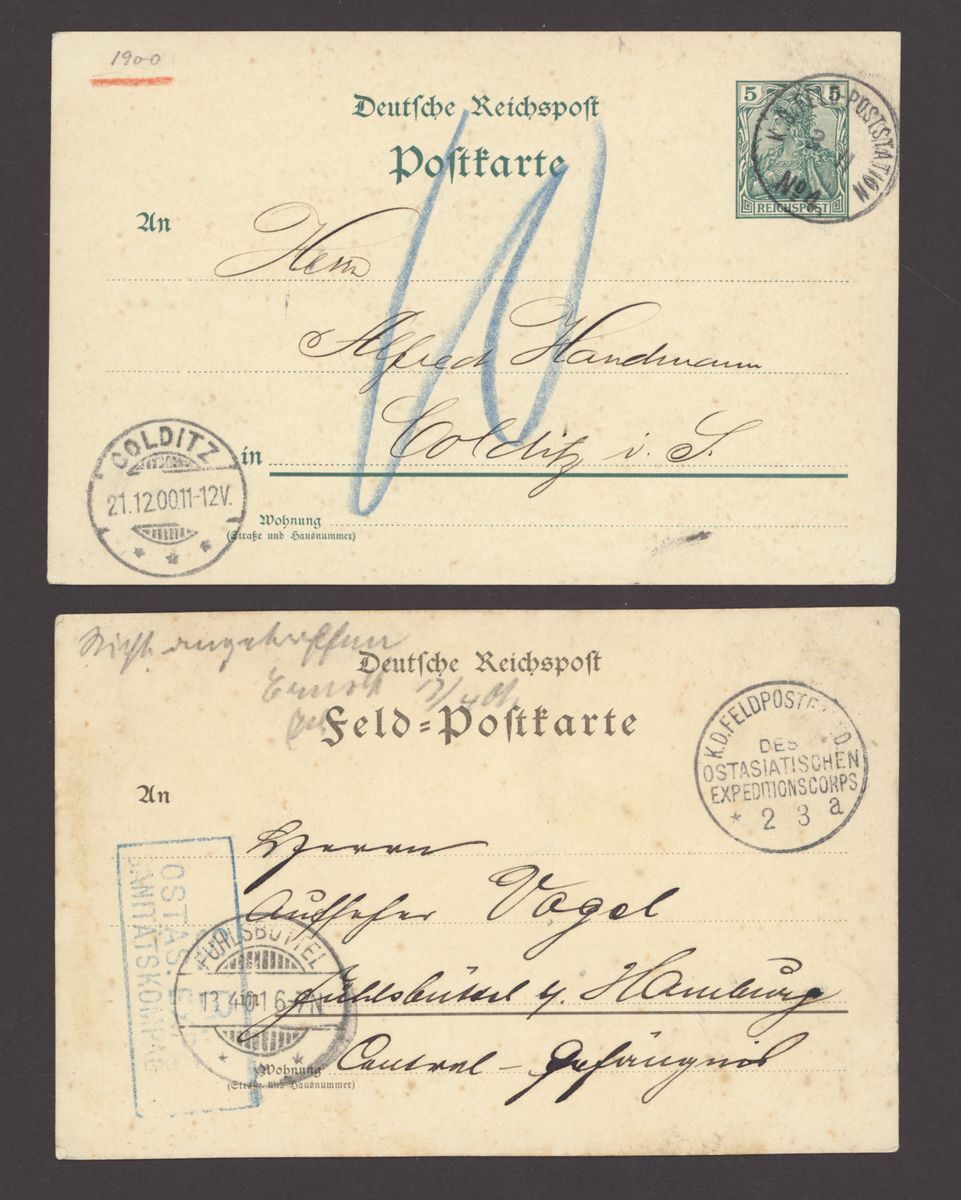 1900
Deutsche Reichspost
Postkarte
5 5
REICHSPOST
K.D. FELD-POSTSTATION
No 4
An
Herrn
Alfred Handmann
in Colditz i. S.
10
COLDITZ
21.12.00.11-12V.
Wohnung
(Straße und Hausnummer)
Nicht angetroffen
Deutsche Reichspost
Feld=Postkarte
K.D.FELDPOSTEXPED.
DES
OSTASIATISCHEN
EXPEDITIONSCORPS
* 2 3 a
An
Herrn
Aufseher Vogel
Fuhlsbüttel b. Hamburg
Central-Gefängnis
OSTAS.
SANITÄTSKOMPAG
FUHLSBÜTTEL
13.4.01 6-7N
in
Wohnung
(Straße und Hausnummer)